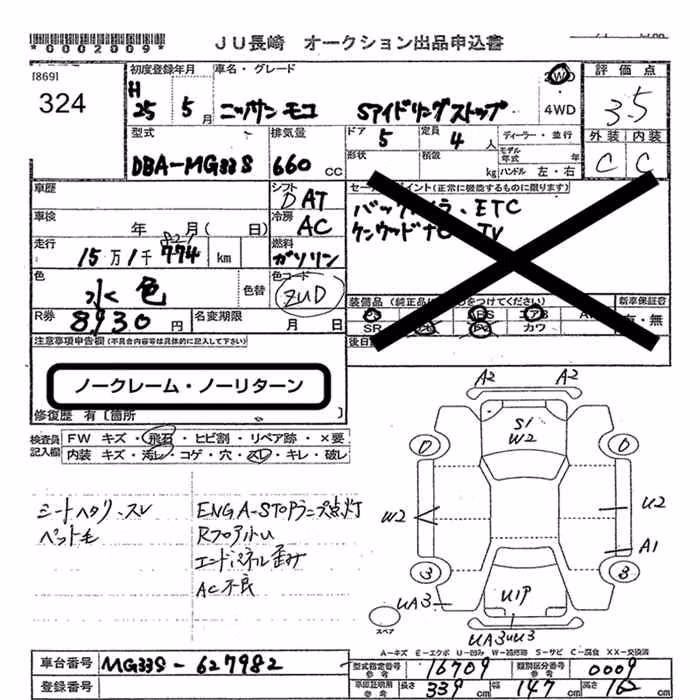 *0002009*
JU長崎 オークション出品申込書
[869]
324
初度登録年月
H
25 5月
車名・グレード
ニッサン モコ Sアイドリングストップ
2WD
・
4WD
評価点
3.5
外装 内装
C C
型式
DBA-MG33S
排気量
660 CC
ドア
5
定員
4人
ディーラー・並行
形状
積載
kg
モデル年式 年
ハンドル 左・右
車歴
シフト
DAT
セールスポイント(正常に機能するものに限ります)
バックカメラ、ETC
ケンウッドナビ TV
車検
年 月( 日)
冷房
AC
走行
15万1千774 km
燃料
ガソリン
色
水色
色替
色コード
ZUD
R券
8930円
名変期限
月 日
装備品(純正品に○をつけてください)
新車保証書
有・無
PS ABS エアB AW
SR ナビ PW カワ
後日
注意事項申告欄(不具合内容等は具体的に記入して下さい)
ノークレーム・ノーリターン
修復歴 有〔箇所 〕
検査員記入欄
FW キズ・飛石・ヒビ割・リペア跡・×要
内装 キズ・汚レ・コゲ・穴・スレ・キレ・破レ
シートヘタリ・スレ
ペット毛
ENG A-STOPランプ点灯
Rフロアハル
エンドパネル歪み
AC不良
A2 A2
S1
W2
W2
U2
A1
3 3
UA3
U1P
UA3 UU3
スペア
A−キズ E−エクボ U−凹み W−補修跡 S−サビ C−腐食 XX−交換済
車台番号 MG33S-627982
登録番号
型式指定番号 参考 16709
類別区分番号 参考 0009
車認証取用 参考
長さ 339 cm
幅 147 cm
高さ 16 cm